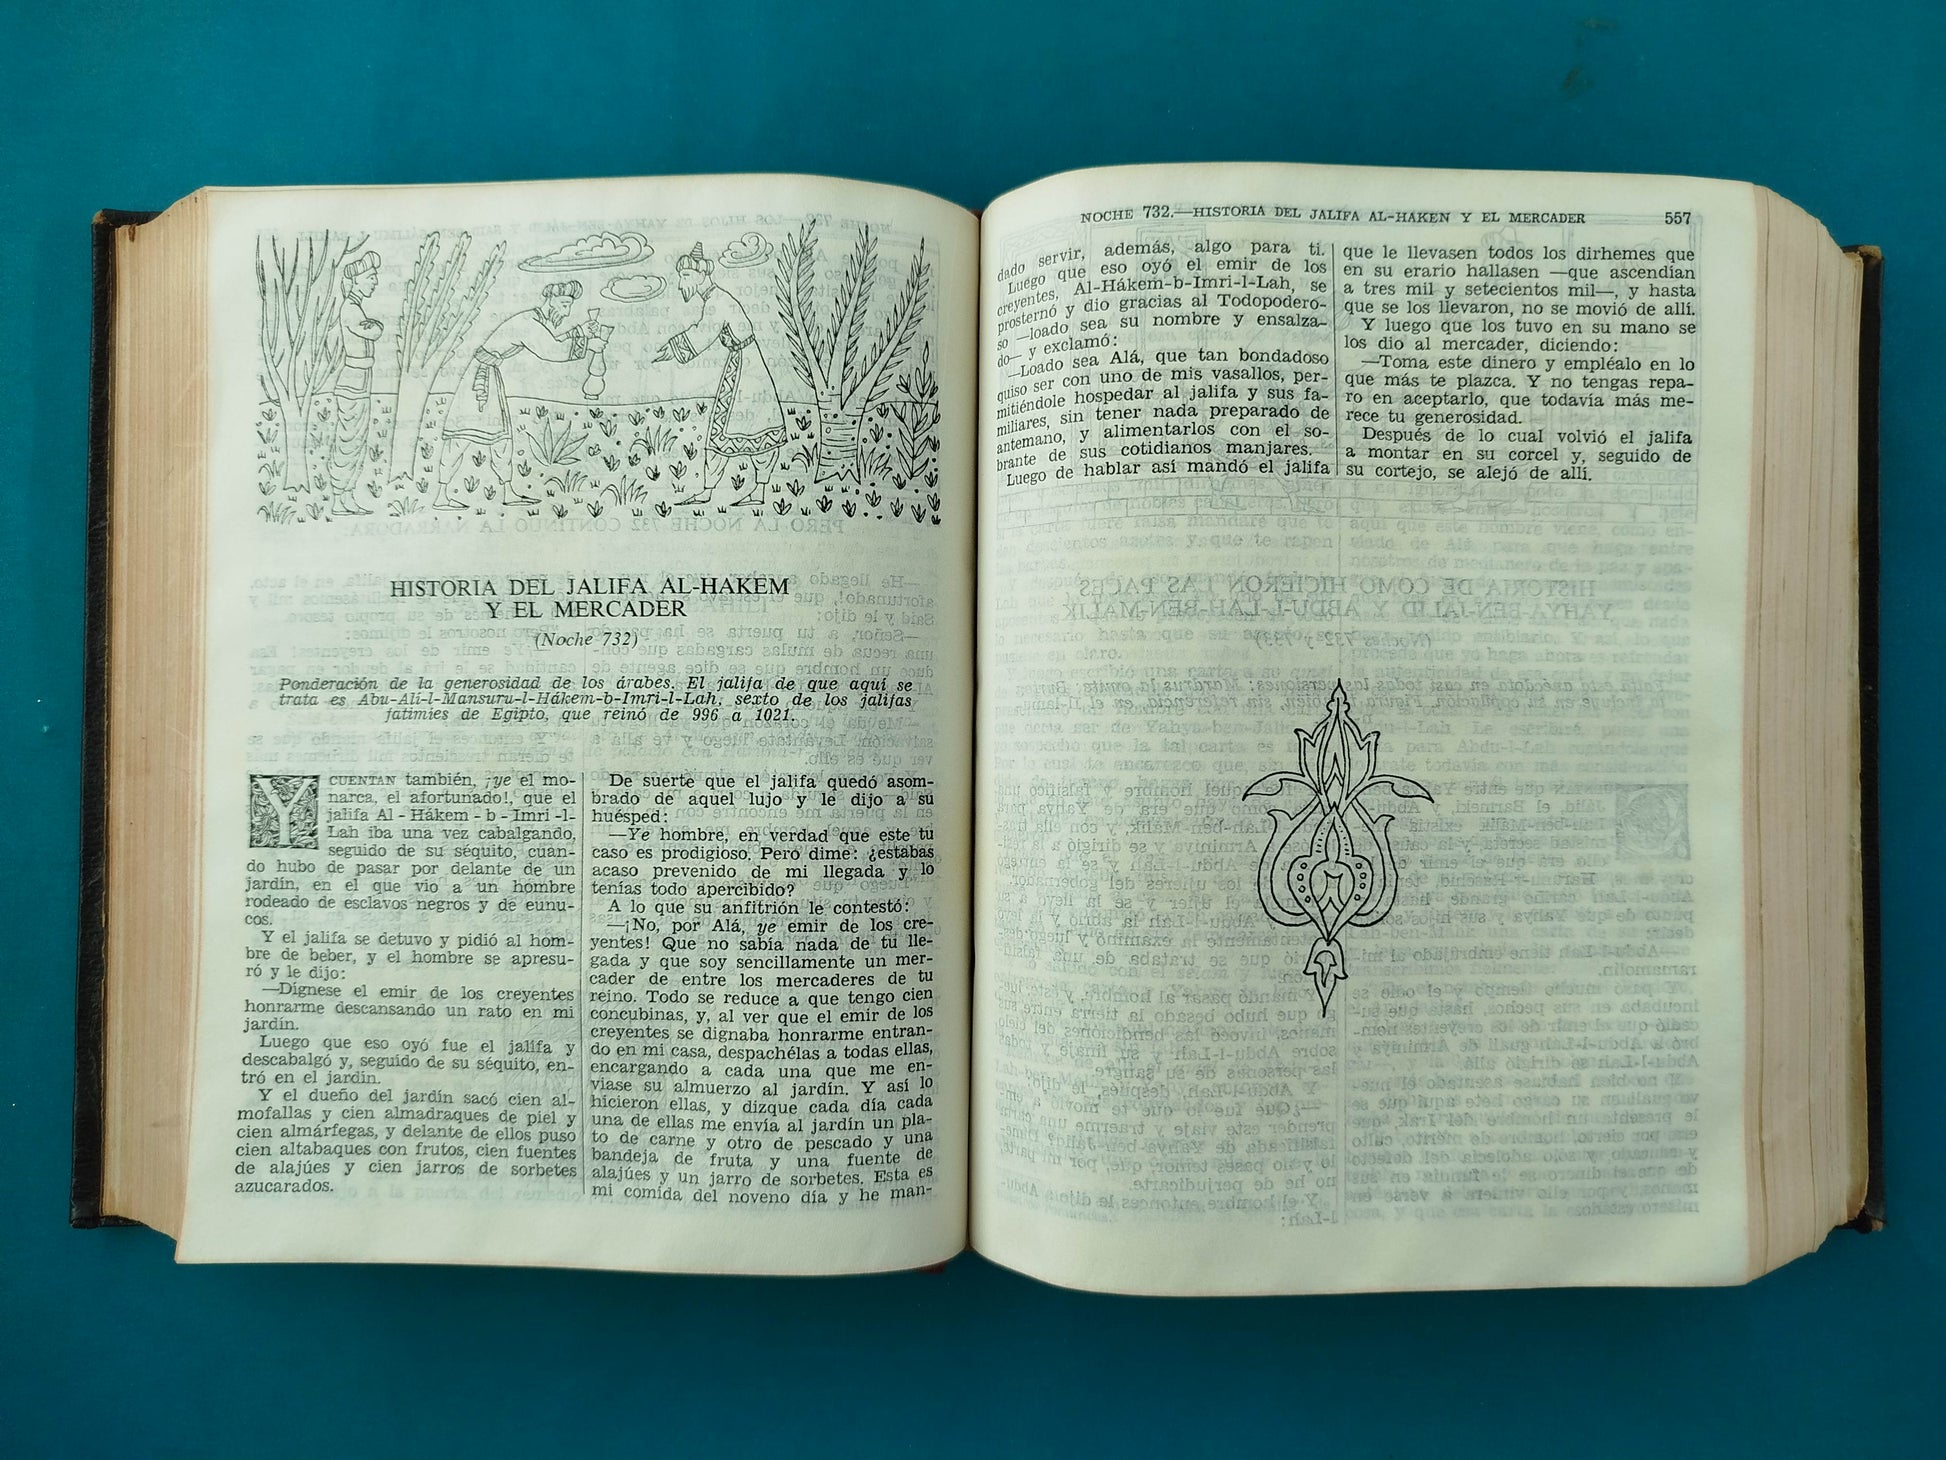 HISTORIA DEL JALIFA AL-HAKEM
Y EL MERCADER
(Noche 732)
Ponderación de la generosidad de los árabes. El jalifa de que aquí se
trata es Abu-Alí-l-Mansuru-l-Hákem-b-Imri-l-Lah, sexto de los jalifas
fatimíes de Egipto, que reinó de 996 a 1021.
Y CUENTAN también, ¡ye el mo-
narca, el afortunado!, que el
jalifa Al - Hákem - b - Imri -l-
Lah iba una vez cabalgando,
seguido de su séquito, cuan-
do hubo de pasar por delante de un
jardín, en el que vio a un hombre
rodeado de esclavos negros y de eunu-
cos.
Y el jalifa se detuvo y pidió al hom-
bre de beber, y el hombre se apresu-
ró y le dijo:
—Dígnese el emir de los creyentes
honrarme descansando un rato en mi
jardín.
Luego que eso oyó fue el jalifa y
descabalgó y, seguido de su séquito, en-
tró en el jardín.
Y el dueño del jardín sacó cien al-
mofallas y cien almadraques de piel y
cien almárfegas, y delante de ellos puso
cien altabaques con frutos, cien fuentes
de alajúes y cien jarros de sorbetes
azucarados.
De suerte que el jalifa quedó asom-
brado de aquel lujo y le dijo a su
huésped:
—Ye hombre, en verdad que este tu
caso es prodigioso. Pero dime: ¿estabas
acaso prevenido de mi llegada y lo
tenías todo apercibido?
A lo que su anfitrión le contestó:
—¡No, por Alá, ye emir de los cre-
yentes! Que no sabía nada de tu lle-
gada y que soy sencillamente un mer-
cader de entre los mercaderes de tu
reino. Todo se reduce a que tengo cien
concubinas, y, al ver que el emir de los
creyentes se dignaba honrarme entran-
do en mi casa, despachélas a todas ellas,
encargando a cada una que me en-
viase su almuerzo al jardín. Y así lo
hicieron ellas, y dizque cada día cada
una de ellas me envía al jardín un pla-
to de carne y otro de pescado y una
bandeja de fruta y una fuente de
alajúes y un jarro de sorbetes. Esta es
mi comida del noveno día y he man-
NOCHE 732.—HISTORIA DEL JALIFA AL-HAKEN Y EL MERCADER 557
dado servir, además, algo para ti.
Luego que eso oyó el emir de los
creyentes, Al-Hákem-b-Imri-l-Lah, se
prosternó y dio gracias al Todopodero-
so —loado sea su nombre y ensalza-
do— y exclamó:
—Loado sea Alá, que tan bondadoso
quiso ser con uno de mis vasallos, per-
mitiéndole hospedar al jalifa y sus fa-
miliares, sin tener nada preparado de
antemano, y alimentarlos con el so-
brante de sus cotidianos manjares.
Luego de hablar así mandó el jalifa
que le llevasen todos los dirhemes que
en su erario hallasen —que ascendían
a tres mil y setecientos mil—, y hasta
que se los llevaron, no se movió de allí.
Y luego que los tuvo en su mano se
los dio al mercader, diciendo:
—Toma este dinero y empléalo en lo
que más te plazca. Y no tengas repa-
ro en aceptarlo, que todavía más me-
rece tu generosidad.
Después de lo cual volvió el jalifa
a montar en su corcel y, seguido de
su cortejo, se alejó de allí.